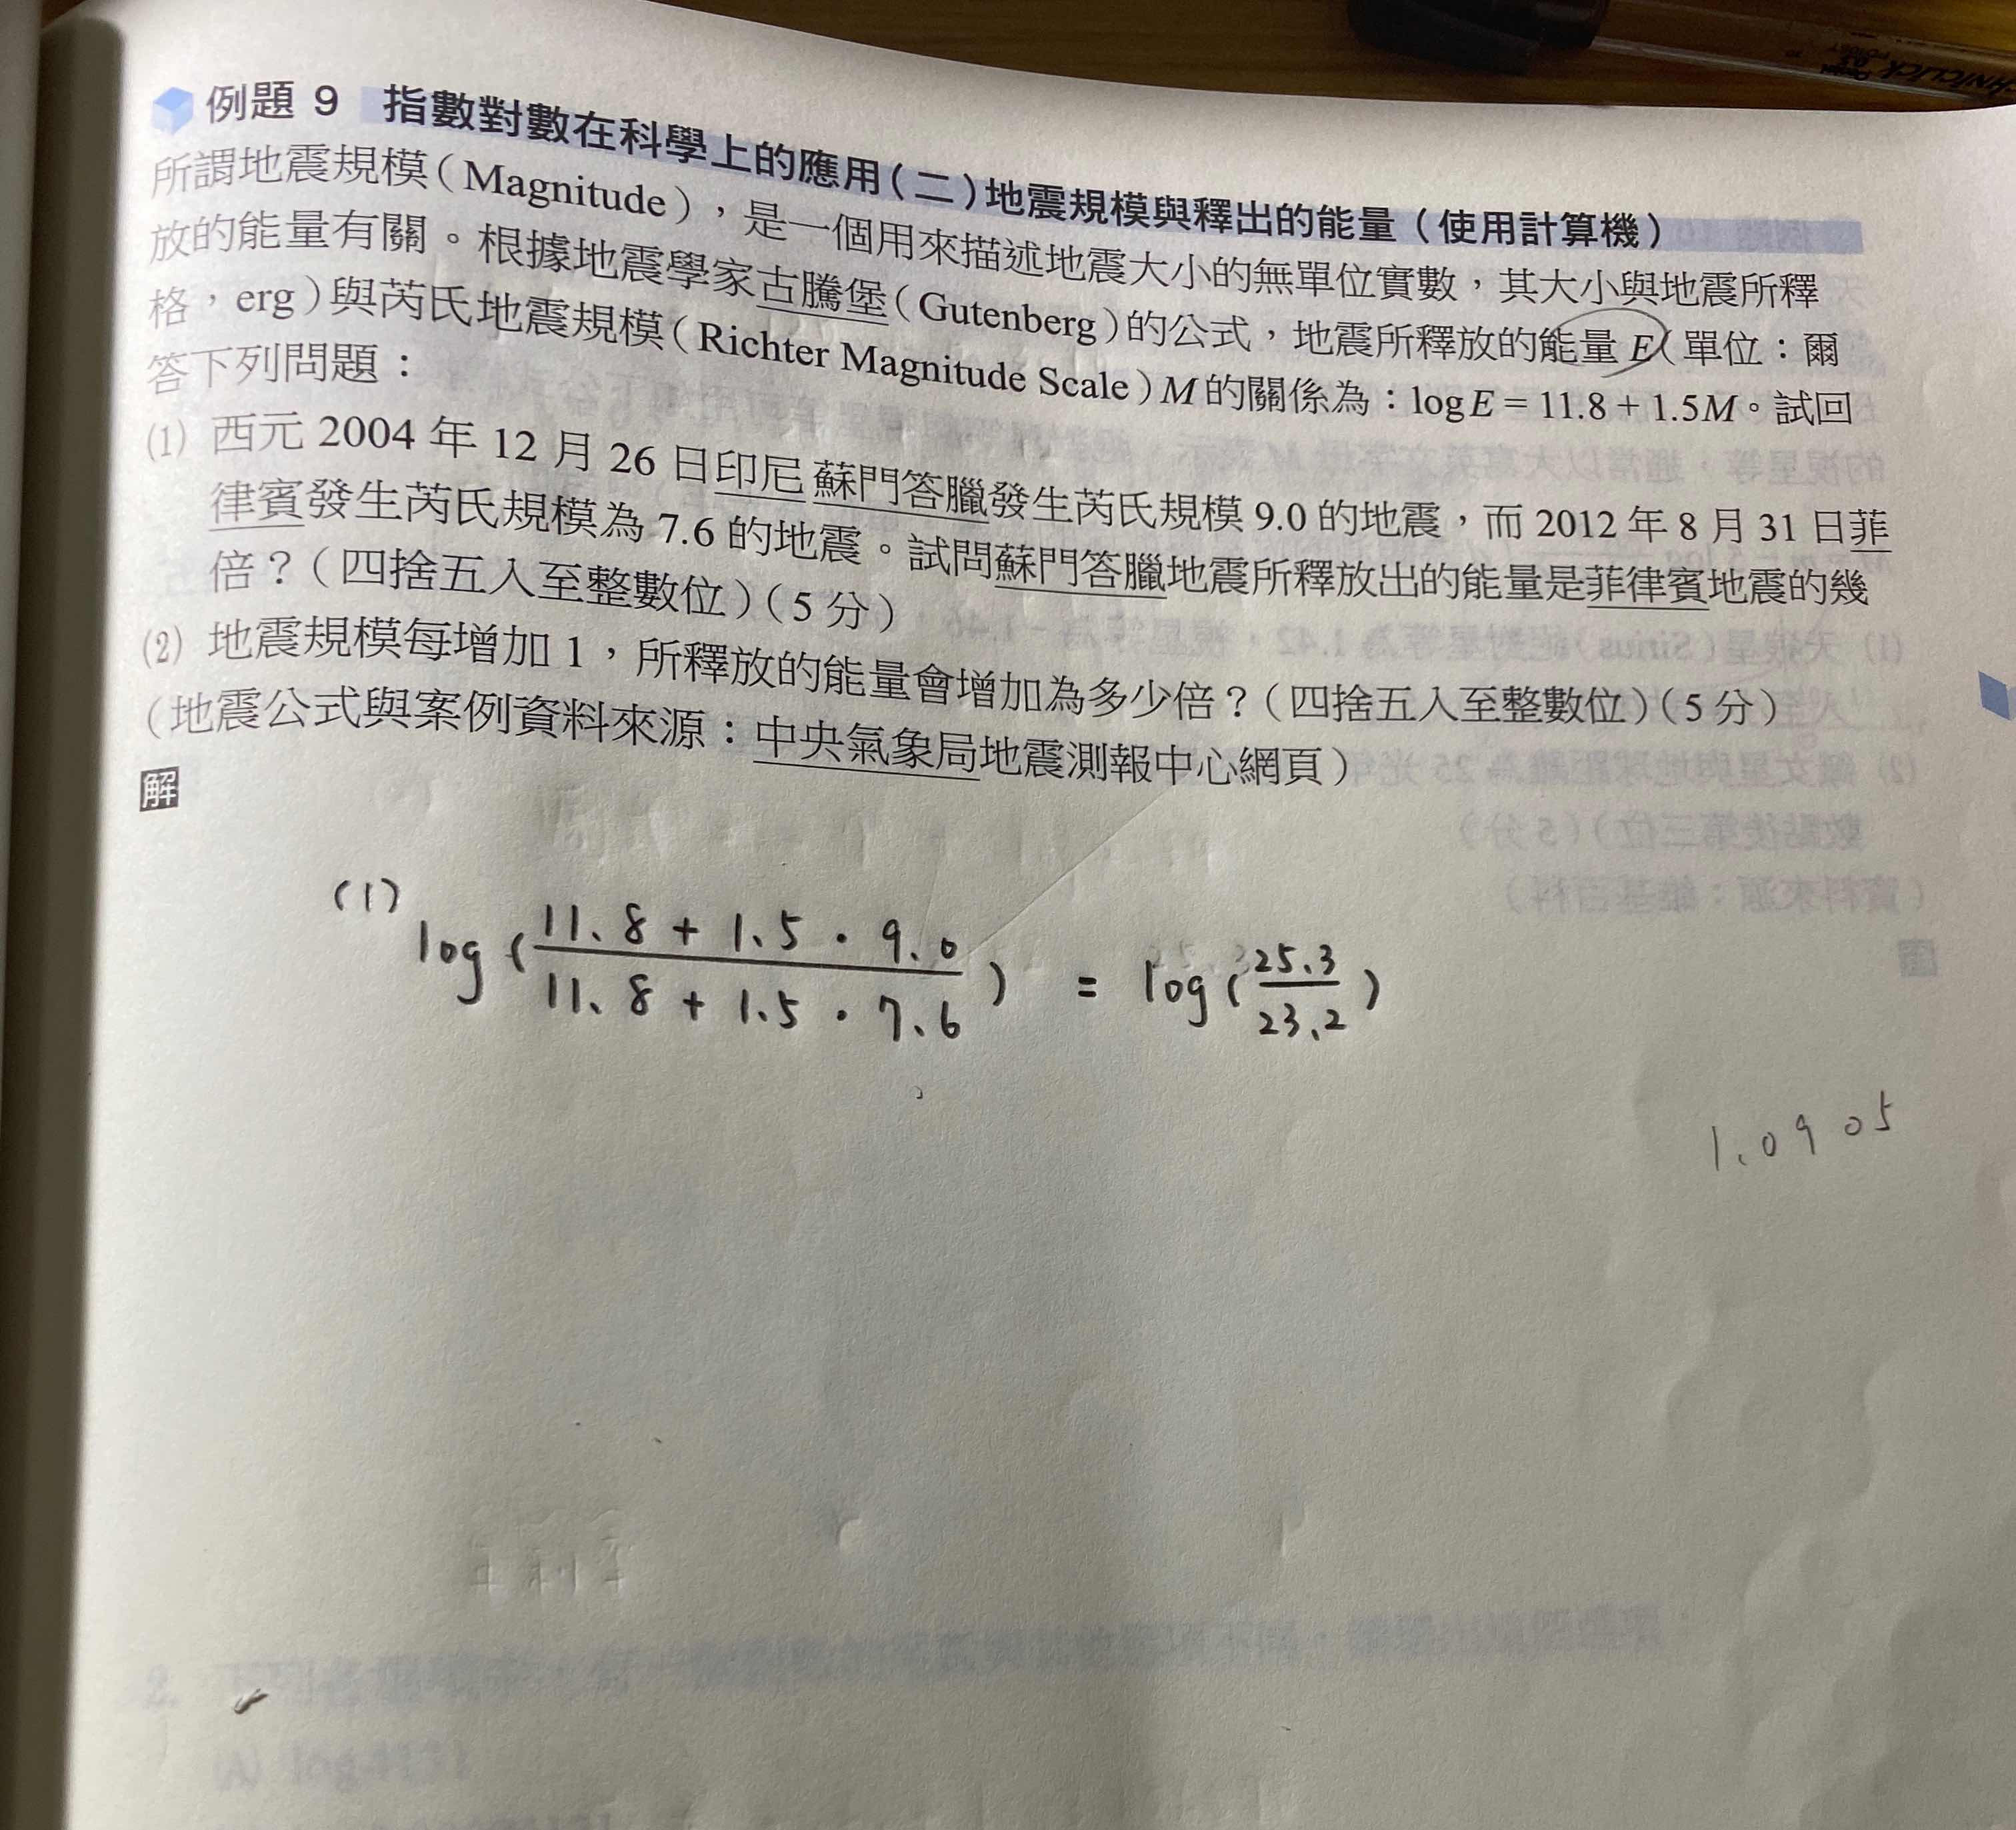 例題 9 指數對數在科學上的應用(二)地震規模與釋出的能量(使用計算機)
所謂地震規模(Magnitude),是一個用來描述地震大小的無單位實數,其大小與地震所釋
放的能量有關。根據地震學家古騰堡(Gutenberg)的公式,地震所釋放的能量 E(單位:爾
格,erg)與芮氏地震規模(Richter Magnitude Scale)M 的關係為:log E = 11.8 + 1.5M。試回
答下列問題:
(1) 西元 2004 年 12 月 26 日印尼蘇門答臘發生芮氏規模 9.0 的地震,而 2012 年 8 月 31 日菲
律賓發生芮氏規模為 7.6 的地震。試問蘇門答臘地震所釋放出的能量是菲律賓地震的幾
倍?(四捨五入至整數位)(5 分)
(2) 地震規模每增加 1,所釋放的能量會增加為多少倍?(四捨五入至整數位)(5 分)
(地震公式與案例資料來源:中央氣象局地震測報中心網頁)
解
(1) log(11.8 + 1.5 · 9.0 / 11.8 + 1.5 · 7.6) = log(25.3 / 23.2)
1.0905